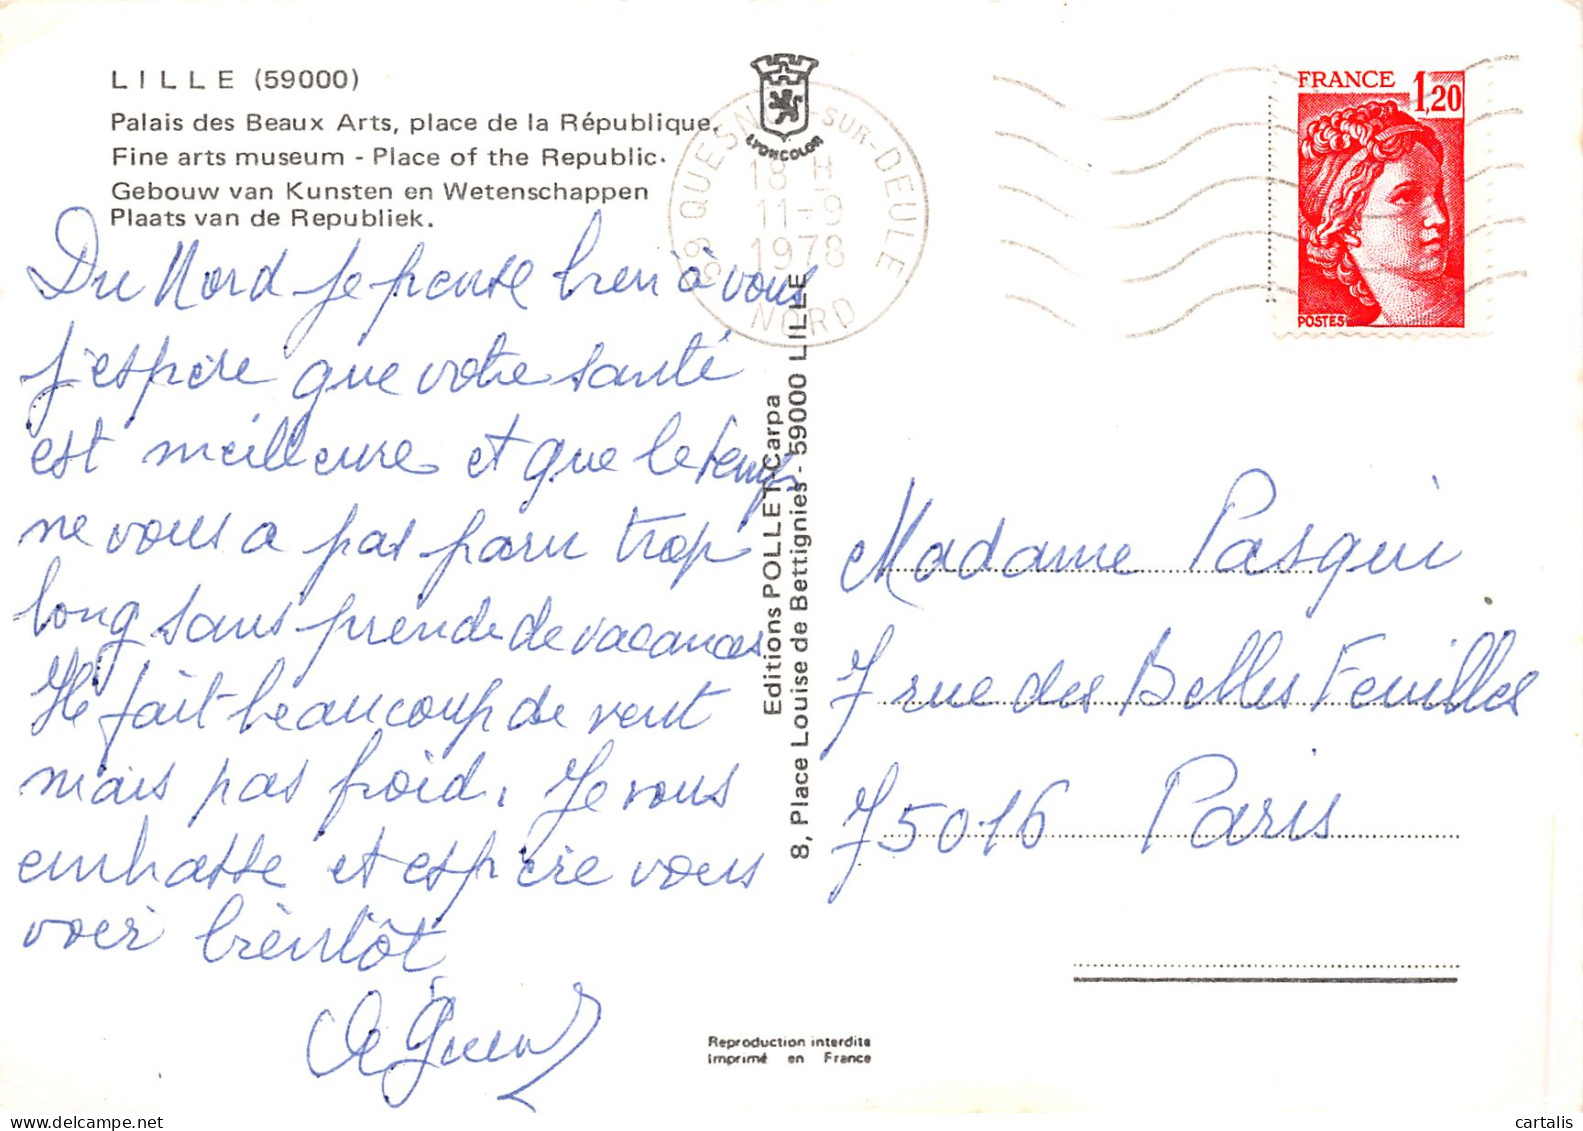 LILLE (59000)
Palais des Beaux Arts, place de la République.
Fine arts museum - Place of the Republic.
Gebouw van Kunsten en Wetenschappen
Plaats van de Republiek.
Du Nord je pense bien à vous
j'espère que votre santé
est meilleure et que le temps
ne vous a pas paru trop
long sans prendre de vacances
Il fait beaucoup de vent
mais pas froid. Je vous
embrasse et espère vous
voir bientôt
LYONCOLOR
59 QUESNOY-SUR-DEULE
18 H
11-9
1978
NORD
FRANCE 1,20
POSTES
Editions POLLET-Carpa
8, Place Louise de Bettignies - 59000 LILLE
Madame Pasqui
7 rue des Belles Feuilles
75016 Paris
Reproduction interdite
Imprimé en France
cartalis